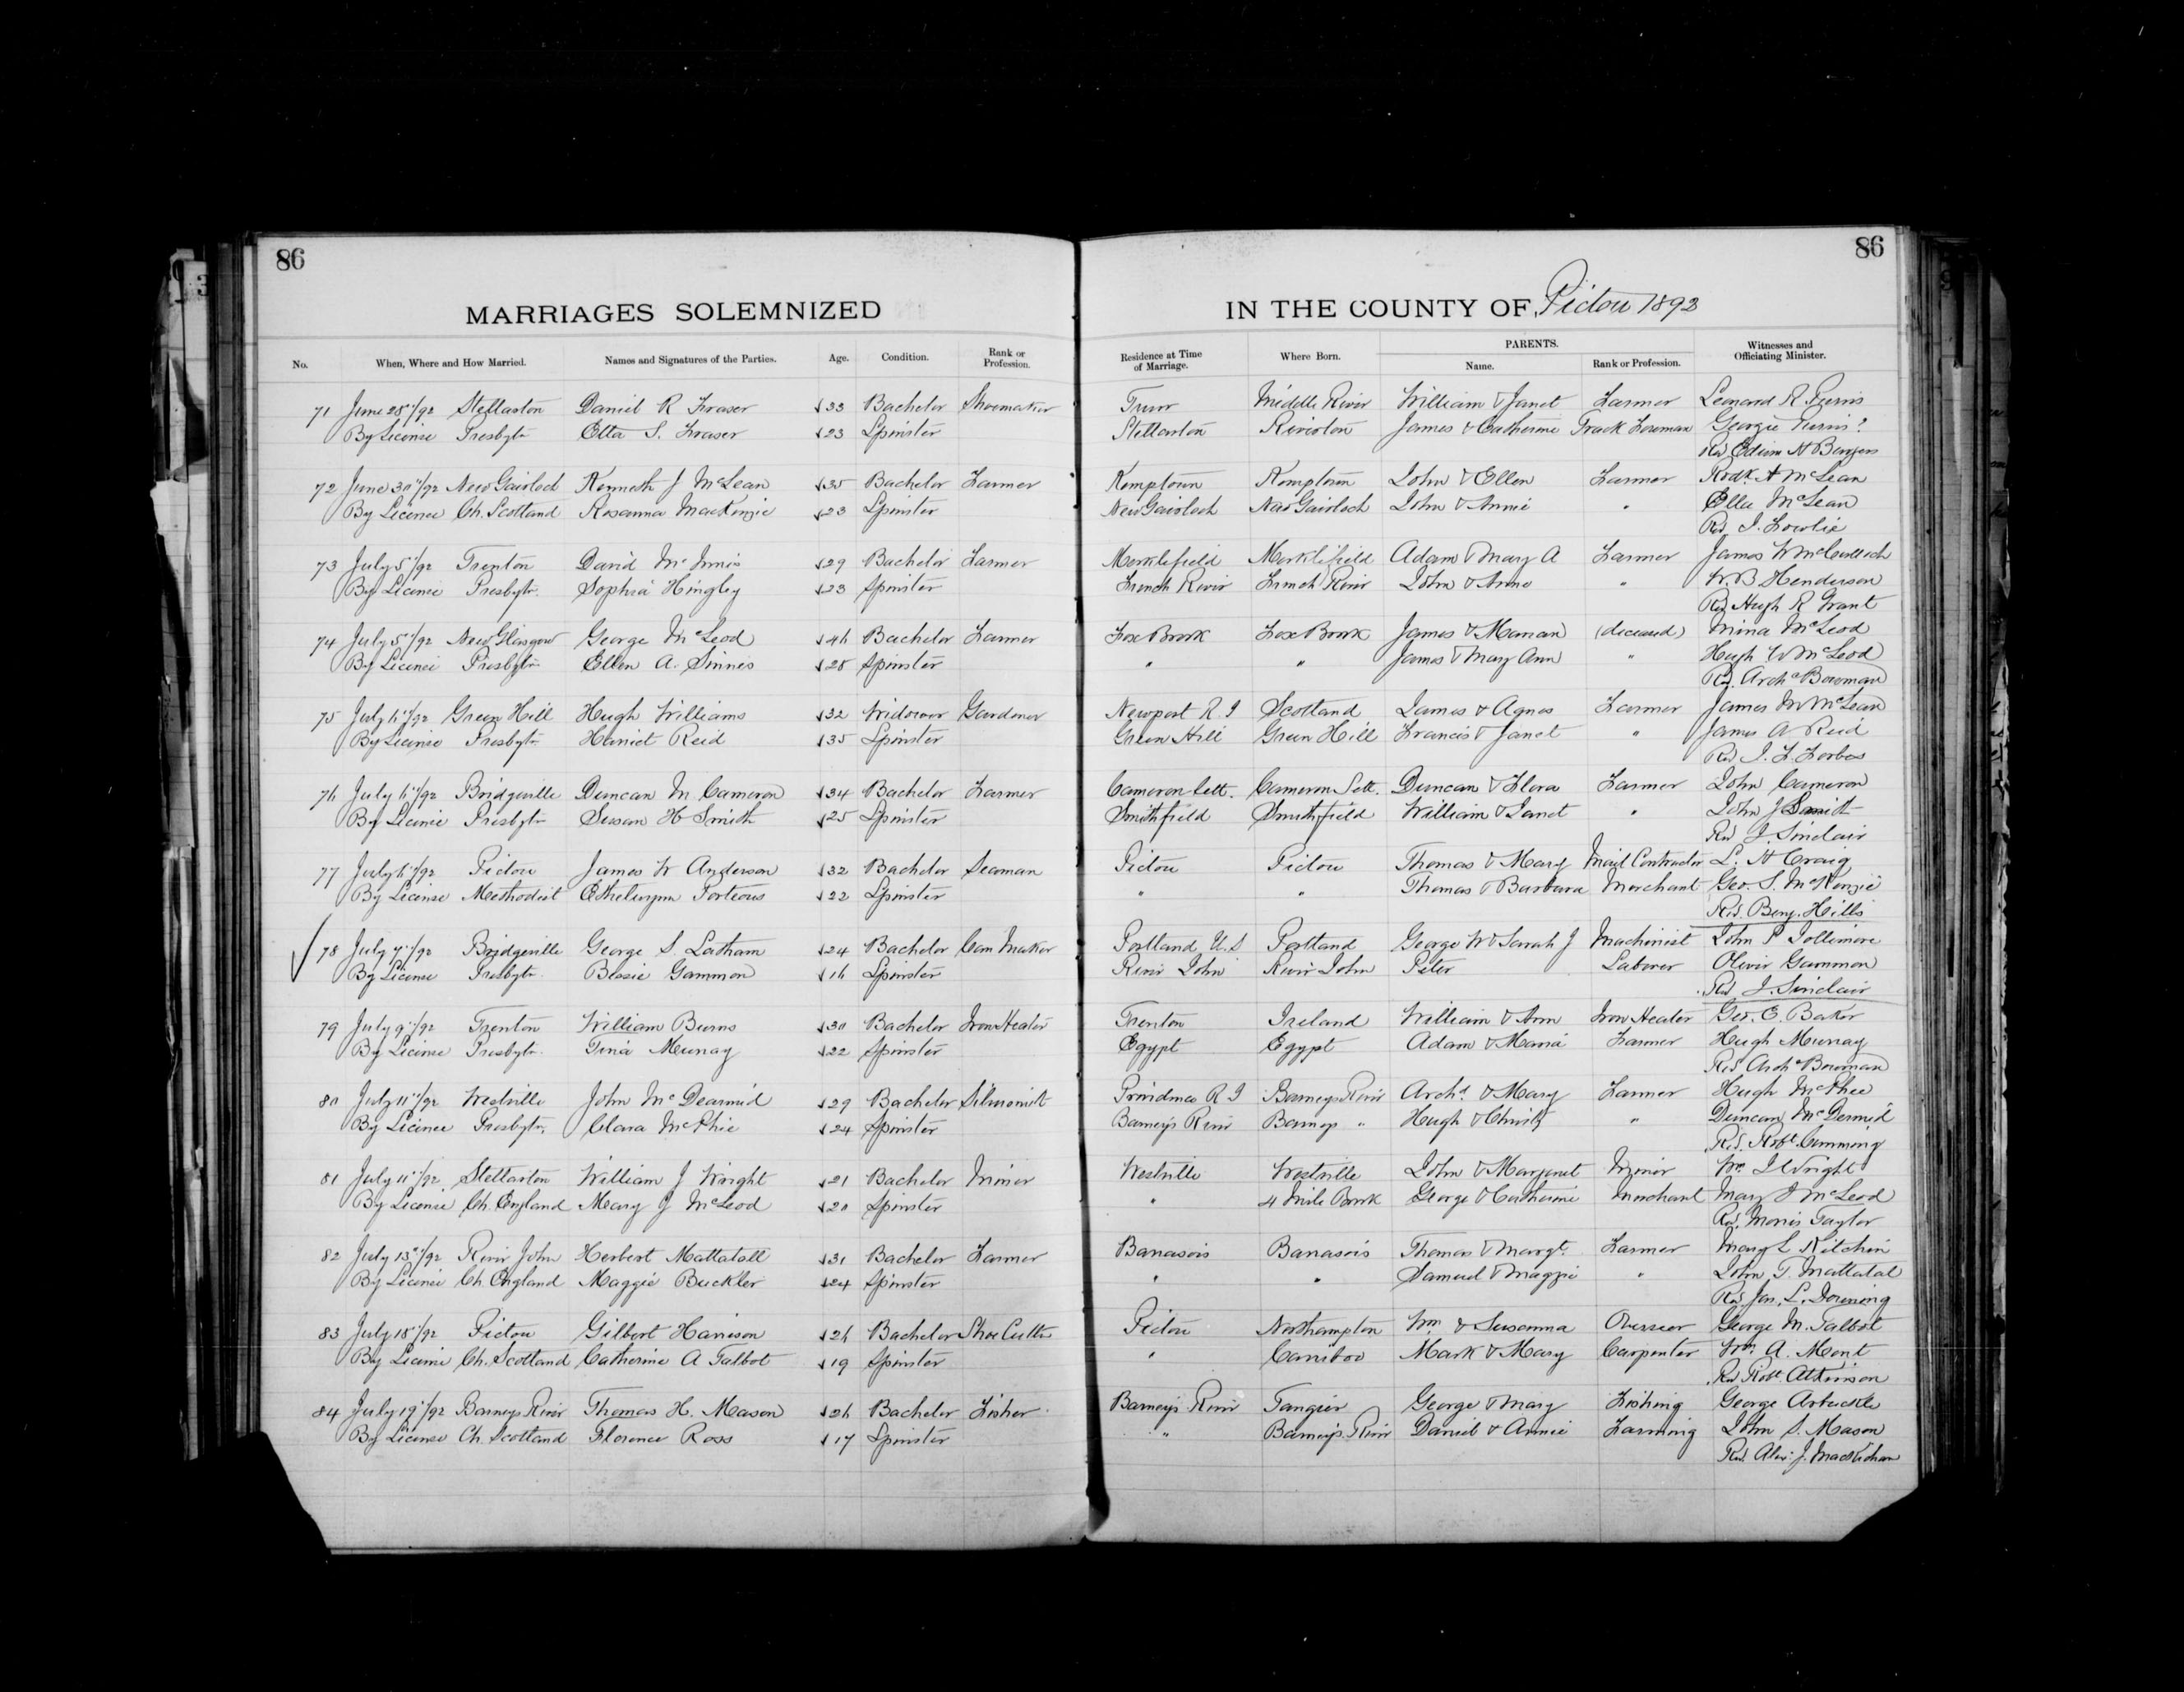 86
86
MARRIAGES SOLEMNIZED
IN THE COUNTY OF Pictou 1892
No. When, Where and How Married. Names and Signatures of the Parties. Age. Condition. Rank or Profession. Residence at Time of Marriage. Where Born. PARENTS. Name. Rank or Profession. Witnesses and Officiating Minister.
71 June 28"/92 Stellarton Daniel R Fraser 33 Bachelor Shoemaker Truro Middle River William & Janet Farmer Leonard R.
By License Presbytn Etta S. Fraser 23 Spinster Stellarton Riverton James & Catherine Track Foreman Georgie ?
Rev
72 June 30"/92 New Gairloch Kenneth J McLean 35 Bachelor Farmer Kemptown Kemptown John & Ellen Farmer Rodk A McLean
By Licence Ch. Scotland Rosanna MacKenzie 23 Spinster New Gairloch New Gairloch John & Annie " Ella McLean
Rev J. Fowlie
73 July 5"/92 Trenton David McInnis 29 Bachelor Farmer Merklefield Merklefield Adam & Mary A Farmer James W McCulloch
By Licence Presbytn. Sophia Hingley 23 Spinster French River French River John & Anne " W. B Henderson
Rev Hugh R Grant
74 July 5"/92 New Glasgow George McLeod 46 Bachelor Farmer Fox Brook Fox Brook James & Marian (deceased) Mina McLeod
By Licence Presbytn Ellen A. 28 Spinster " " James & Mary Ann " Hugh W McLeod
Rev. Archd Bowman
75 July 6"/92 Green Hill Hugh Williams 32 Widower Gardener Newport R. I Scotland James & Agnes Farmer James M McLean
By Licence Presbytn Harriet Reid 35 Spinster Green Hill Green Hill Francis & Janet " James A Reid
Rev J. F. Forbes
76 July 6"/92 Bridgeville Duncan M Cameron 34 Bachelor Farmer Cameron Sett. Cameron Sett. Duncan & Flora Farmer John Cameron
By Licence Presbytn Susan H Smith 25 Spinster Smithfield Smithfield William & Janet " John J Smith
Rev J. Sinclair
77 July 6"/92 Pictou James W Anderson 32 Bachelor Seaman Pictou Pictou Thomas & Mary Mail Contractor L. H Craig
By License Methodist Ethelwynn Porteous 22 Spinster " " Thomas & Barbara Merchant Geo. S. McKenzie
Rev. Benj. Hills
78 July 7"/92 Bridgeville George S. Latham 24 Bachelor Portland U.S Portland George W & Sarah J Machinist John P Jollimore
By License Presbytn. Bessie Gammon 16 Spinster River John River John Peter Laborer Oliver Gammon
Rev J. Sinclair
79 July 9"/92 Trenton William Burns 30 Bachelor Iron Heater Trenton Ireland William & Ann Iron Heater Geo. E. Baker
By License Presbytn. Tina Murray 22 Spinster Egypt Egypt Adam & Maria Farmer Hugh Murray
Rev Archd Bowman
80 July 11"/92 Westville John McDearmid 29 Bachelor Silversmith Providence R I Barneys River Archd. & Mary Farmer Hugh McPhee
By Licence Presbytn. Clara McPhie 24 Spinster Barneys River Barneys " Hugh & Christy " Duncan McDermid
Rev. Robt. Cumming
81 July 11"/92 Stellarton William J Wright 21 Bachelor Miner Westville Westville John & Margaret Miner Wm J Wright
By License Ch. England Mary J McLeod 20 Spinster " 4 Mile Brook George & Catherine Merchant Mary J McLeod
Rev. Morris Taylor
82 July 13"/92 River John Herbert Mattatall 31 Bachelor Farmer Thomas & Margt. Farmer Mary L Kitchin
By Licence Ch. England Maggie Buckler 24 Spinster " " Samuel & Maggie " John T. Mattatal
Rev Jas. L. Downing
83 July 18"/92 Pictou Gilbert Harrison 26 Bachelor Shoe Cutter Pictou Northampton Wm & Susanna Overseer George M. Talbot
By Licence Ch. Scotland Catherine A Talbot 19 Spinster " Cariboo Mark & Mary Carpenter Wm. A. Mont
Rev Robt. Atkinson
84 July 19"/92 Barneys River Thomas H. Mason 26 Bachelor Fisher Barneys River Tangier George & Mary Fishing George Arbuckle
By License Ch. Scotland Florence Ross 17 Spinster " Barneys River Daniel & Annie Farming John S. Mason
Rev. Alex. J.